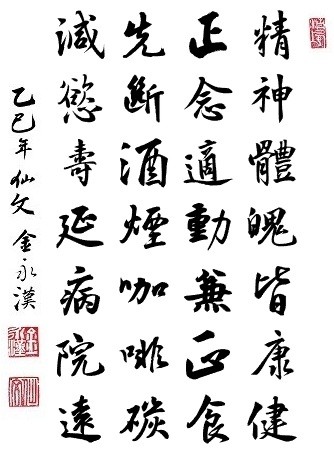 精神體魄皆康健
正念適動兼正食
先斷酒煙咖啡碳
減慾壽延病院遠
乙巳年仙文金永漢